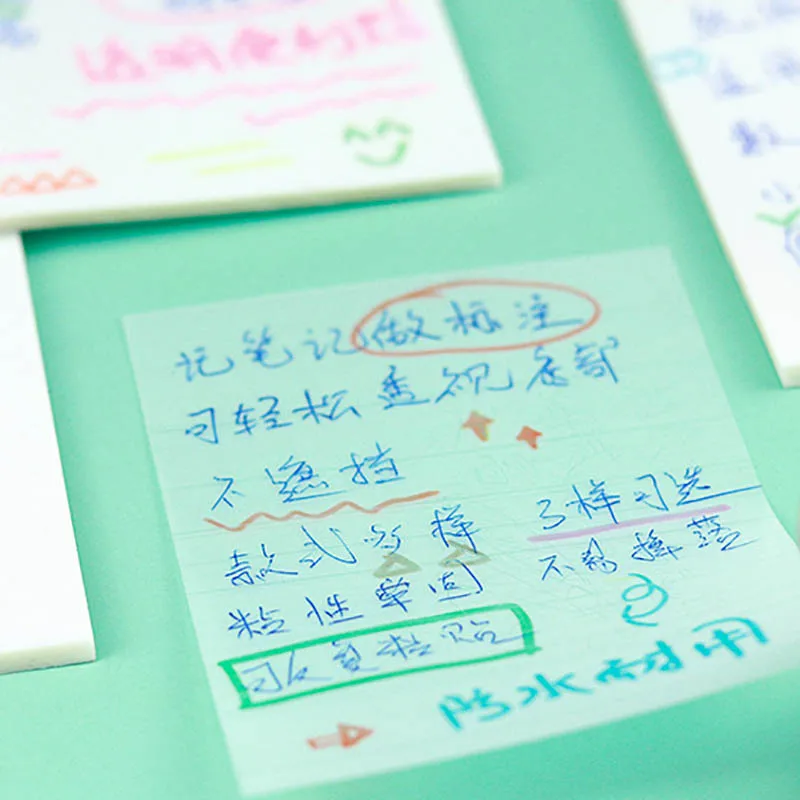 透明便利贴
记笔记做标注
可轻松透视底部
不遮挡
款式多样
多样可选
粘性牢固
不易掉落
可反复粘贴
防水耐用